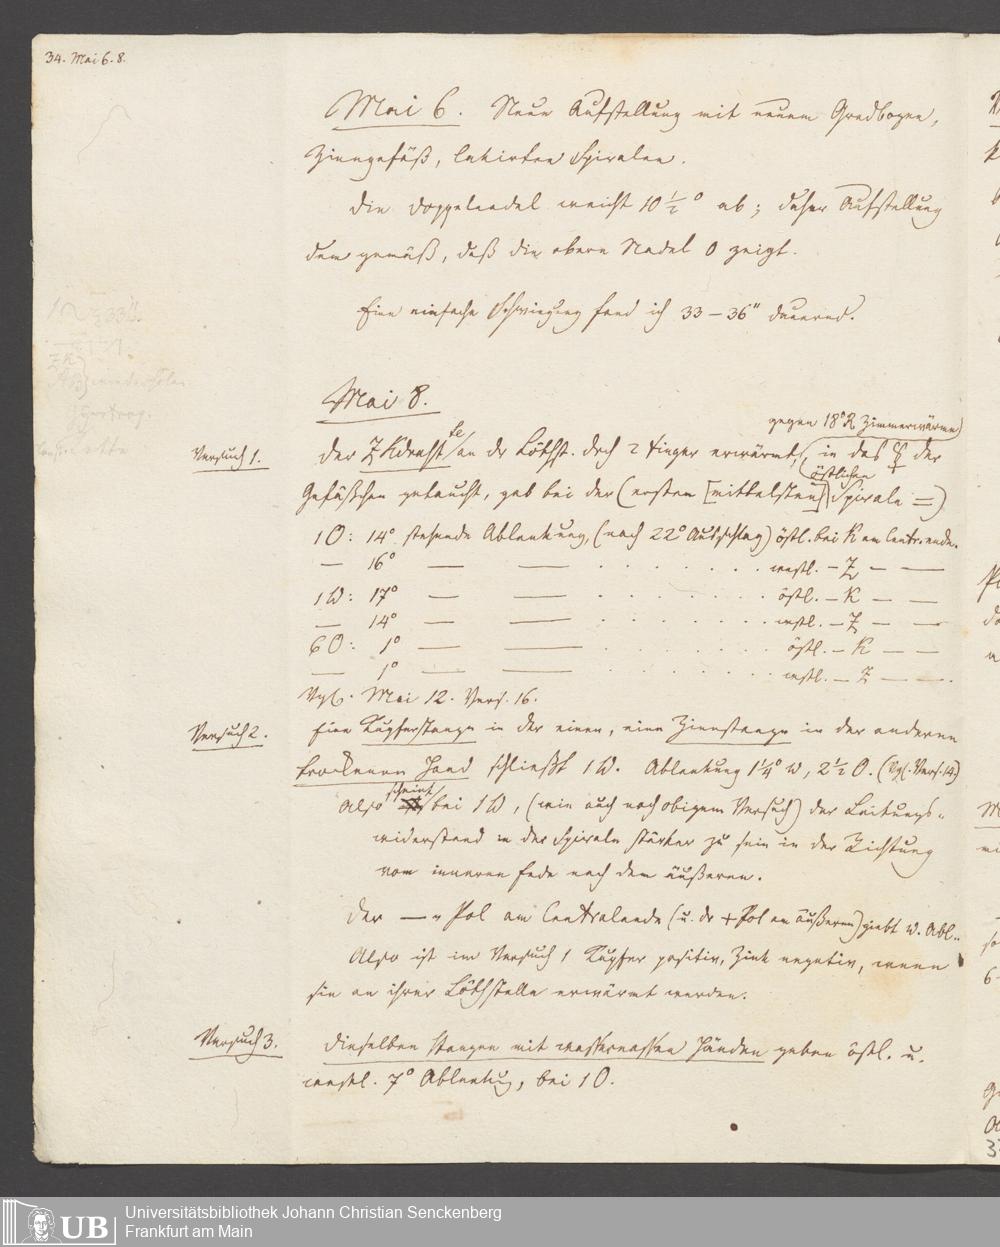 34. Mai 6. 8.
Mai 6. Neue Aufstellung mit neuem Gradbogen,
Zinngefäß, lakirten Spiralen.
Die Doppelnadel weicht 10 1/2° ab; daher Aufstellung
dem gemäß, daß die obere Nadel 0 zeigt.
Eine einfache Schwingung fand ich 33–36" dauernd.
Mai 8.
gegen 18°R Zimmerwärme)
Versuch 1.
Der ZKdraht an der Löthst. dch 2 Finger erwärmt, in das ☿ der
östlichen
Gefäßchen getaucht, gab bei der (ersten [mittelsten] Spirale =)
10: 14° stehende Ablenkung, (nach 22° Ausschlag) östl. bei K am Centr.ende.
— 16° — — . . . . . . . westl. – Z — —
1W: 17° — — . . . . . . . östl. – K — —
— 14° — — . . . . . . . westl. – Z — —
60: 1° — — . . . . . . . östl. – K — —
— 1° — — . . . . . . . westl. – Z — —.
Vgl. Mai 12. Vers. 16.
Versuch 2.
Eine Kupferstange in der einen, eine Zinnstange in der anderen
trockenen Hand schließt 1W. Ablenkung 1 1/4° W, 2 1/2 O. (Vgl. Vers. 14.)
scheint
Also bei 1W, (wie auch nach obigem Versuch) der Leitungs-
widerstand in der Spirale stärker zu sein in der Richtung
vom inneren Ende nach dem äußeren.
Der — Pol am Centralende (u. dr + Pol am äußeren) giebt W. Abl.
Also ist im Versuch 1 Kupfer positiv, Zink negativ, wenn
sie an ihrer Löthstelle erwärmt werden.
Versuch 3.
Dieselben Stangen mit wassernassen Händen geben östl. u.
westl. 7° Ablenkug, bei 10.
UB
Universitätsbibliothek Johann Christian Senckenberg
Frankfurt am Main